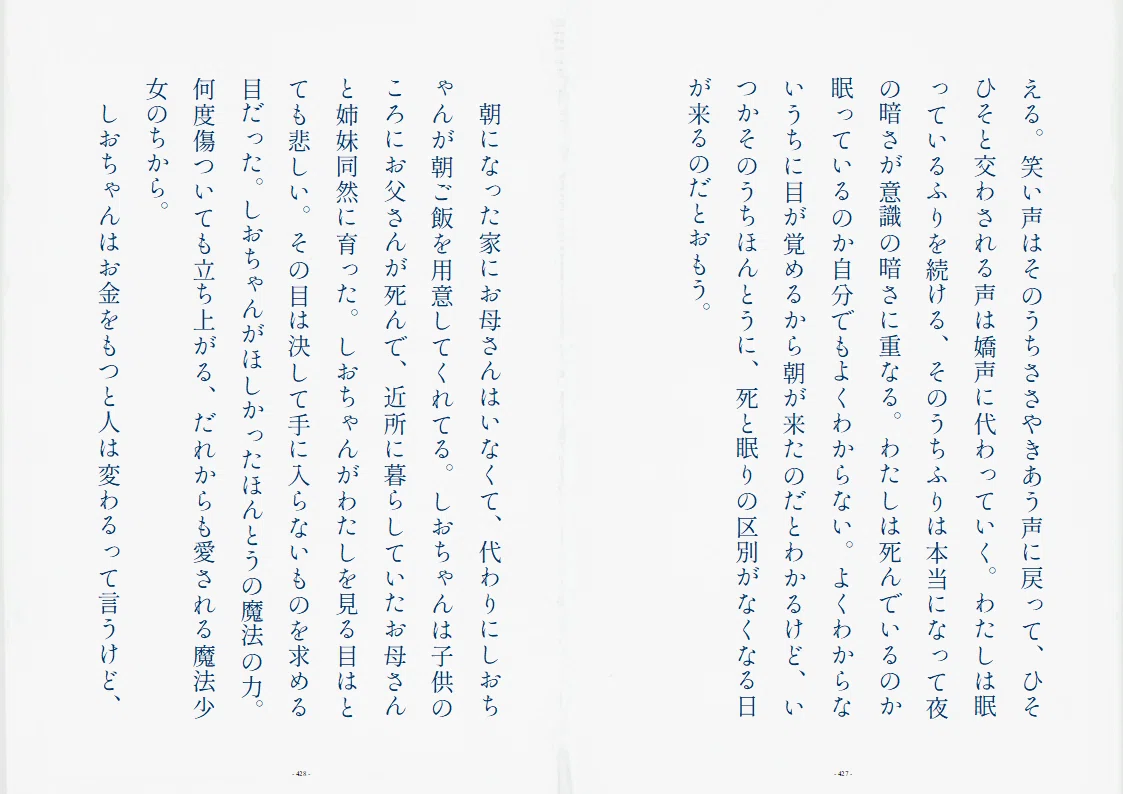 える。笑い声はそのうちささやきあう声に戻って、ひそ
ひそと交わされる声は嬌声に代わっていく。わたしは眠
っているふりを続ける、そのうちふりは本当になって夜
の暗さが意識の暗さに重なる。わたしは死んでいるのか
眠っているのか自分でもよくわからない。よくわからな
いうちに目が覚めるから朝が来たのだとわかるけど、い
つかそのうちほんとうに、死と眠りの区別がなくなる日
が来るのだとおもう。
- 427 -
朝になった家にお母さんはいなくて、代わりにしおち
ゃんが朝ご飯を用意してくれてる。しおちゃんは子供の
ころにお父さんが死んで、近所に暮らしていたお母さん
と姉妹同然に育った。しおちゃんがわたしを見る目はと
ても悲しい。その目は決して手に入らないものを求める
目だった。しおちゃんがほしかったほんとうの魔法の力。
何度傷ついても立ち上がる、だれからも愛される魔法少
女のちから。
しおちゃんはお金をもつと人は変わるって言うけど、
- 428 -